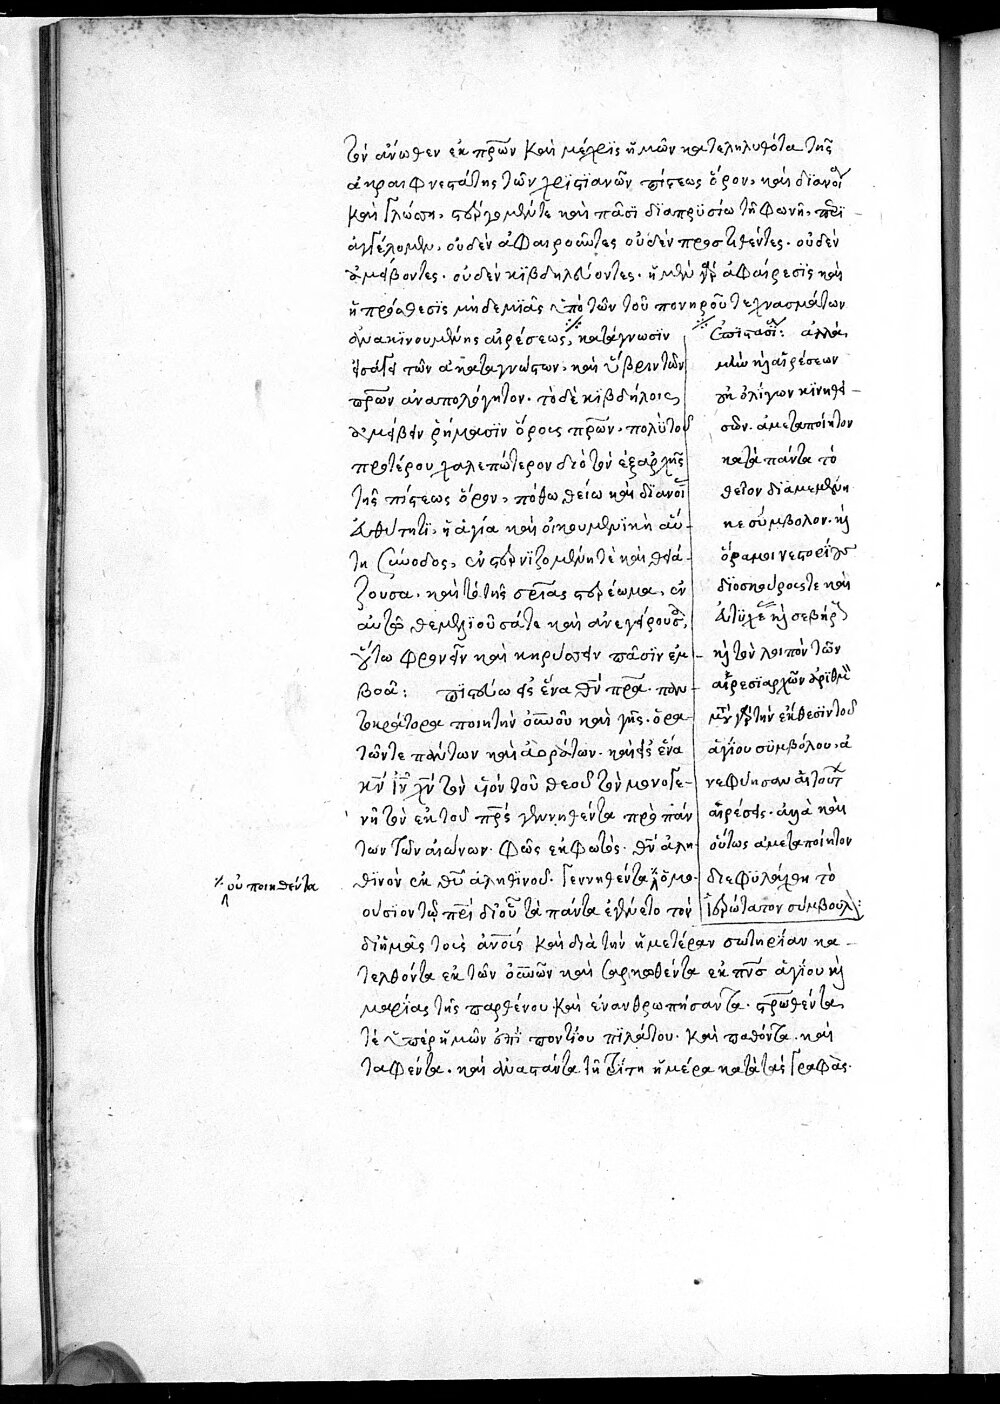 τὸν ἄνωθεν ἐκ πρ̅ων καὶ μέχρϊς ἡμῶν κατεληλυθότα τῆς
ἀκραιφνεστάτης τῶν χριστιανῶν πίστεως ὅρον, καὶ διανοί
καὶ γλώσση, στέργομέν τε καὶ πᾶσϊ διαπρυσίω τῆ φωνῆ, περι
αγγέλομεν, οὐδὲν ἀφαιροῦντες οὐδὲν προστιθέντες. οὐδὲν
ἀμείβοντες. οὐδὲν κϊβδηλεύοντες. ἡ μὲν γὰρ ἀφαίρεσϊς καὶ
ἡ πρόσθεσϊς μηδεμϊᾶς ὑπὸ τῶν τοῦ πονηροῦ τεχνασμάτων
ἀνακϊνουμένης αἱρέσεως, κατάγνωσϊν
εἰσάγει τῶν ἀκαταγνώστων, καὶ ὕβριν τῶν
πρ̅ων ἀναπολόγητον. τὸ δὲ κϊβδήλοις
ἀμείβειν ῥήμασϊν ὅρους πρ̅ων, πολὺ τοῦ
προτέρου χαλεπώτερον διὸ τὸν ἐξαρχῆς
τῆς πίστεως ὅρον, πόθω θείω καὶ διανοί
εὐθύτητι, ἡ ἁγία καὶ οἰκουμενϊκὴ αὕ-
τη σύνοδος, ἐνστερνϊζομένη τε καὶ θειά-
ζουσα. καὶ τὸ τῆς σρ̅ίας στερέωμα, ἐν
αὐτῶ θεμελϊοῦσά τε καὶ ἀνεγείρουσα,
οὕτω φρονεῖν καὶ κηρύσσειν πᾶσϊν ἐμ-
βοᾶ: πϊστεύω εἰς ἕνα θν̅ πρ̅α. παν-
τοκράτορα ποιητὴν οὐνοῦ καὶ γῆς. ὁρα-
τῶν τε πάντων καὶ ἀοράτων. καὶ εἰς ἕνα
κν̅ ιν̅ χν̅ τὸν υἱὸν τοῦ θεοῦ τὸν μονογε-
νῆ τὸν ἐκ τοῦ πρς̅ γεννηθέντα πρὸ πάν
των τῶν αἰώνων. φῶς ἐκ φωτός. θν̅ ἀλη-
θϊνὸν ἐκ θυ̅ ἀληθϊνοῦ. γεννηθέντα ὁμο-
⁒ οὐ ποιηθέντα
ούσϊον τῶ πρι̅ δι οὗ τὰ πάντα ἐγένετο τὸν
δι ἡμᾶς τοὺς ἀνο̅υς καὶ διὰ τὴν ἡμετέραν σωτηρίαν κα-
τελθόντα ἐκ τῶν οὐνῶν καὶ σαρκωθέντα ἐκ πνσ̅ ἁγίου κὶ
μαρίας τῆς παρθένου καὶ ἐνανθρωπήσαντα. στρωθέντα
τὲ ὑπὲρ ἡμῶν ἐπὶ ποντίου πϊλάτου. καὶ παθόντα. καὶ
ταφέντα. καὶ ἀναστάντα τῆ τρίτη ἡμέρα κατὰ τὰς γραφάς.
ἐπϊστασί: ἀλλὰ
μὴν κὶ αἱρέσεων
οὐκ ὀλίγων κϊνηθει-
σῶν. ἀμεταποίητον
κατὰ πάντα τὸ
θεῖον διαμεμένη
κε σύμβολον.
διοσκούροις τε καὶ
εὐτύχε κὶ σεβήρ
κὶ τὸν λοιπὸν τῶν
αἱρεσϊαρχῶν ἀρϊθμ
μετὰ γὰρ τὴν ἔκθεσϊν τοῦ
ἁγίου συμβόλου, ἀ
νεφύησαν αἱ τοιαῦτ
αἱρέσεις. ἀλλὰ καὶ
οὕτως ἀμεταποίητον
διεφυλάχθη τὸ
ἱερώτατον σύμβουλ: